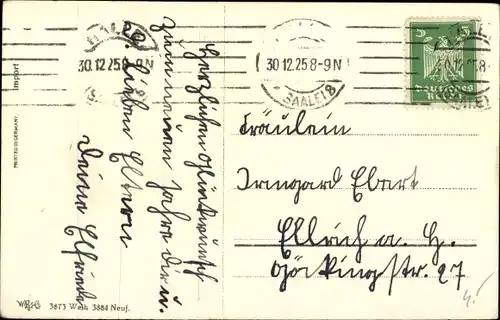 HALLE
30.12.25 8-9N
(SAALE) 8
30.12.25 8-9N
(SAALE) 8
Import
PRINTED IN GERMANY.
Herzlichen Glückwunsch
zum neuen Jahre Dir u.
d. lieben Eltern
Deine Elfriede
Fräulein
Irmgard Ebert
Ellrich a. H.
Göckingstr. 27
3873 Weih 3884 Neuj.